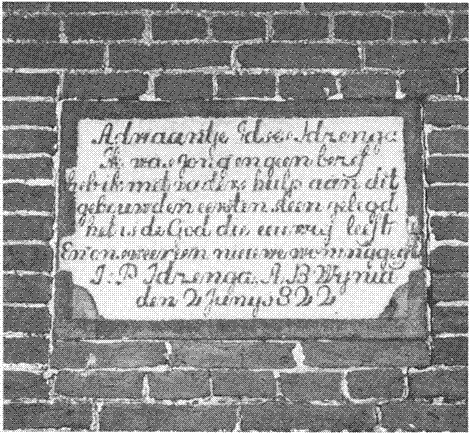 Adriaantje Idses Idzenga
Ik was jong en geen besef
heb ik met vaders hulp aan dit
gebouw den eersten steen gelegd
het is de God die eeuwig leeft
En ons weer een nieuwe woning
I. P. Idzenga. A. B. Wynia
den 2 Junys 1822